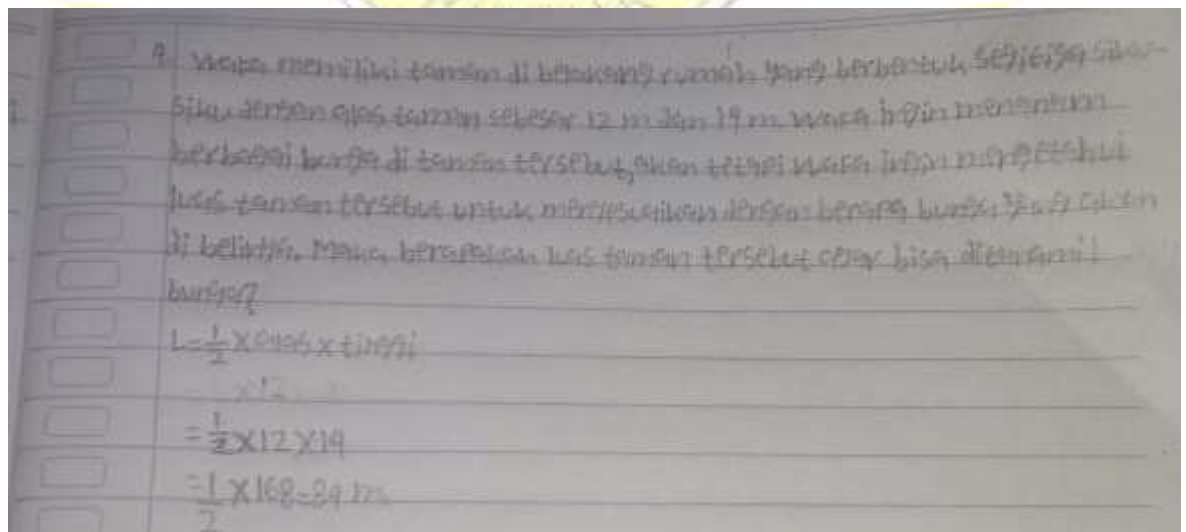 memiliki taman di belakang rumah yang berbentuk segitiga siku-
siku dengan alas taman sebesar 12 m dan 14 m. ingin menanam
berbagai bunga di taman tersebut, akan tetapi ingin mengetahui
luas taman tersebut untuk menyesuaikan dengan berapa bunga yang akan
di belinya. Maka, berapakah luas taman tersebut agar bisa ditanami
bunga?
L = 1/2 × alas × tinggi
× 12
= 1/2 × 12 × 14
= 1/2 × 168 = 84 m